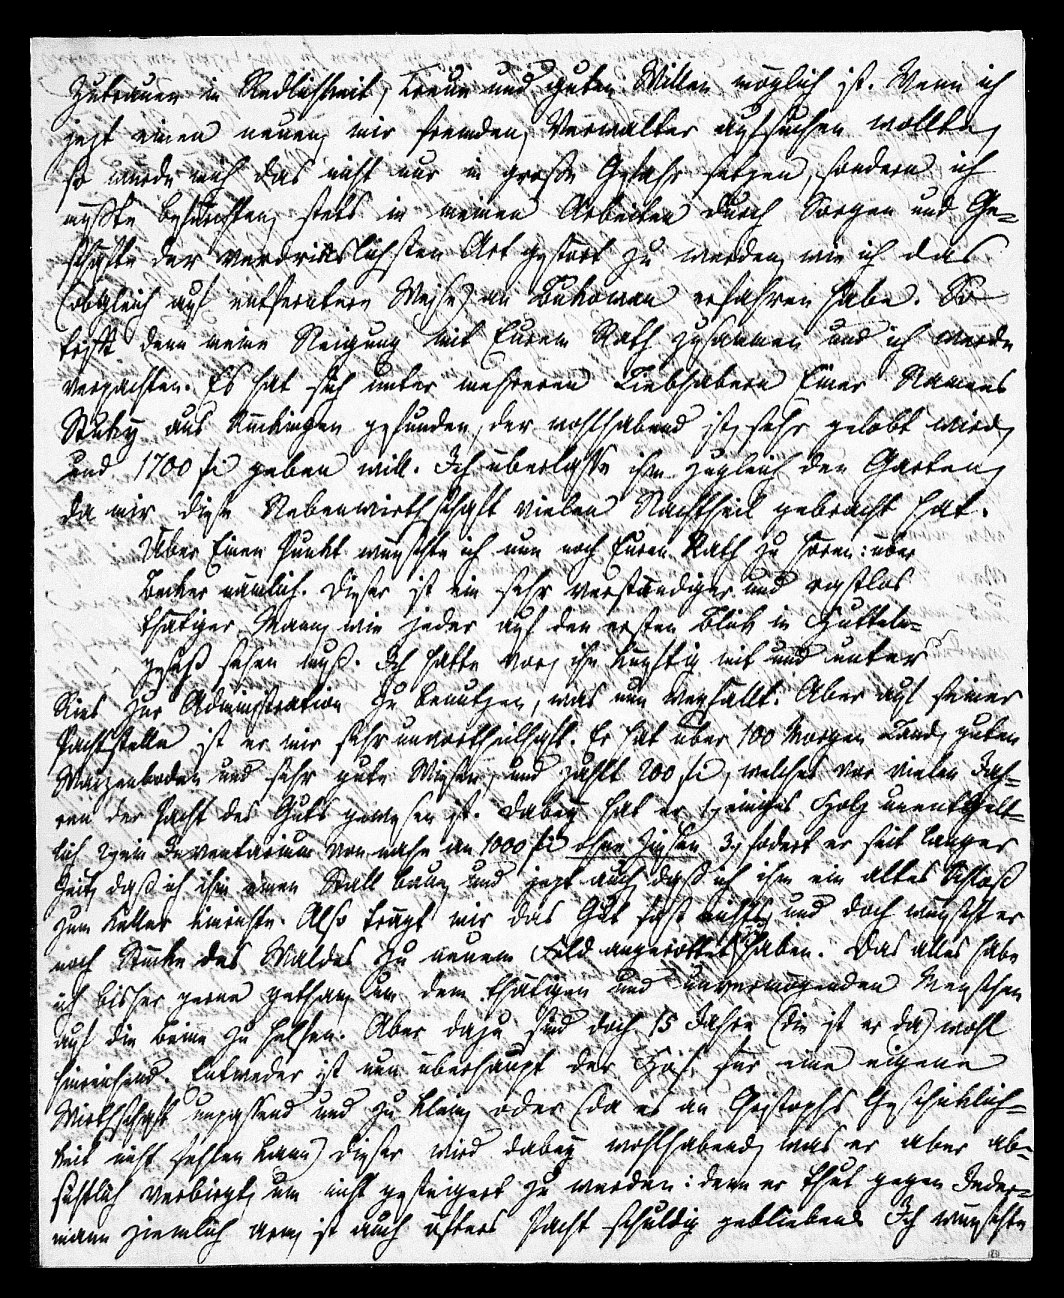 Zutrauen in Redlichkeit, Treue und guten Willen möglich ist. Wenn ich
jezt einen neuen, mir fremden, Verwalter aufsuchen wollte,
so wurde mich das nicht nur in große Gefahr setzen, sondern ich
müßte befürchten, stets in meinen Arbeiten durch Sorgen und Ge-
schäfte der verdrieslichsten Art gestört zu werden, wie ich das
(obgleich auf entferntere Weise) an Bukowan erfahren habe. So
trifft denn meine Neigung mit Eurem Rath zusammen und ich werde
verpachten. Es hat sich unter mehreren Liebhabern Einer Namens
Stuky aus gefunden, der wohlhabend ist, sehr gelobt wird,
und 1700 fl geben will. Ich überlasse ihm zugleich den Garten,
da mir diese Nebenwirthschaft vielen Nachtheil gebracht hat.
Über Einen Punkt wünschte ich nun noch Euren Rath zu hören: über
Becker nämlich. Dieser ist ein sehr verständiger und rastlos
thätiger Mann, wie jeder auf den ersten Blick in Hütteln-
gesäß sehen muß. Ich hatte vor, ihn künftig mit und unter
Ries zur Administration zu benutzen, was nun wegfällt. Aber auf seiner
Pachtstelle ist er mir sehr unvortheilhaft. Er hat über 100 Morgen Land, guten
Waizenboden und sehr gute Wiesen, und zahlt 200 fl, welches vor vielen Jah-
ren der Pacht des Guts gewesen ist. Dabey hat er 1, einiges Holz unentgelt-
lich 2, ein Inventarium von nahe an 1000 fl ohne Zinsen 3, fodert er seit langer
Zeit, daß ich ihm einen Stall baue, und jezt auch, daß ich ihm ein altes Schloß
zum Keller einrichte. Also trägt mir das Gut fast nichts, und doch wünscht er
noch Stücke des Waldes zu neuem Feld angerottet zu haben. Das alles habe
ich bisher gerne gethan, um dem thätigen und unvermögenden Menschen
auf die Beine zu helfen. Aber dazu sind doch 15 Jahre (die ist er da) wohl
hinreichend. Entweder ist nun überhaupt der Hof für eine eigene
Wirthschaft unpassend und zu klein, oder (da es an Christophs Geschicklich-
keit nicht fehlen kann) dieser wird dabey wohlhabend, was er aber ab-
sichtlich verbirgt, um nicht gesteigert zu werden: denn er thut gegen Jeder-
mann ziemlich arm, ist auch öfters Pacht schuldig geblieben. Ich wünschte